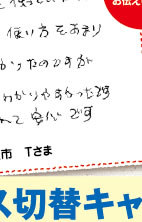 お伝え
使い方をあまり
かったのですが
わかりやすかったです
れて安心です
市 Tさま
ス切替キャ